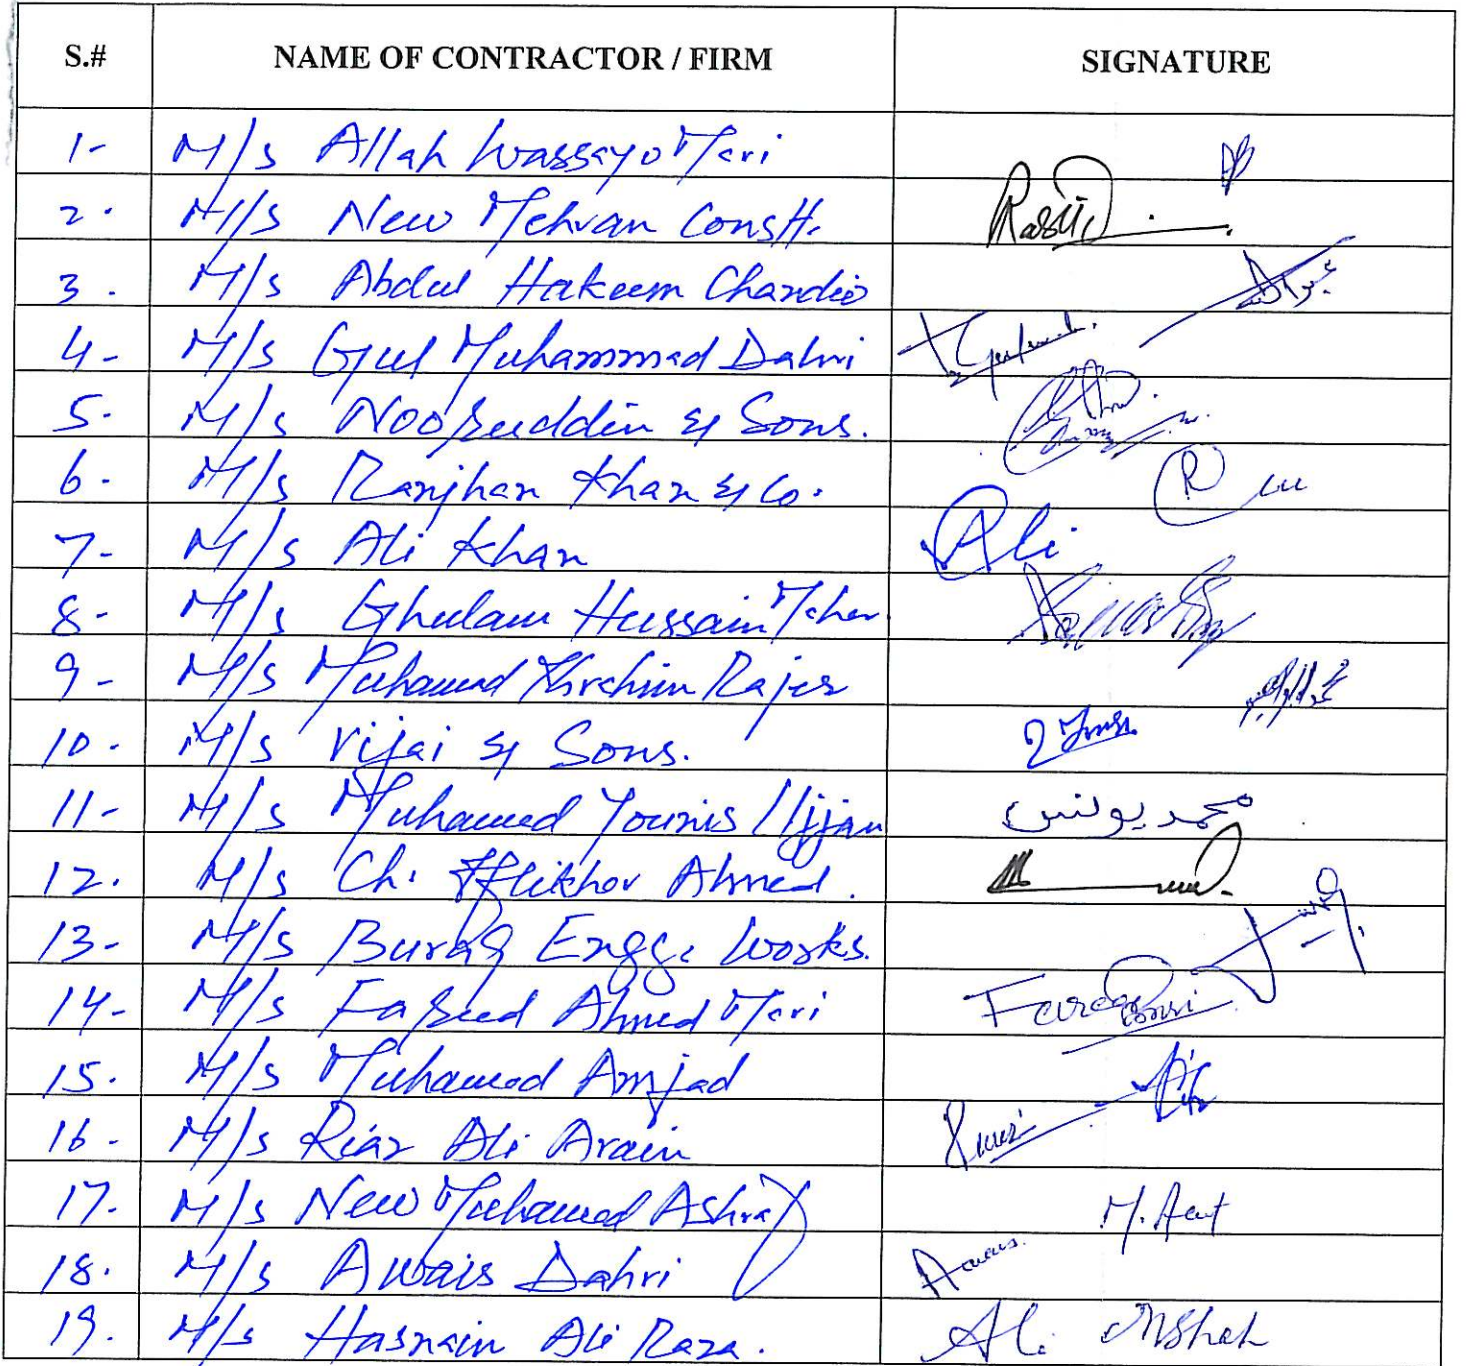 S.# NAME OF CONTRACTOR / FIRM SIGNATURE
1- M/s Allah Wassayo Mari
2. M/s New Mehran Constt. Rashid
3. M/s Abdul Hakeem Chandio
4- M/s Gul Muhammad Dahri
5. M/s Nooruddin & Sons.
6. M/s Ranjhan Khan & Co.
7- M/s Ali Khan Ali
8- M/s Ghulam Hussain Meher
9- M/s Muhamed Ibrahim Rajer
10. M/s Vijai & Sons.
11- M/s Muhamed Younis Ujjan محمد یونس
12. M/s Ch. Iftikhar Ahmed.
13- M/s Buraq Engg. Works.
14- M/s Fareed Ahmed Mari Fareed
15. M/s Muhamed Amjad
16- M/s Riaz Ali Arain
17. M/s New Muhamed Ashraf
18. M/s Awais Dahri
19. M/s Hasnain Ali Raza. Ali Shah